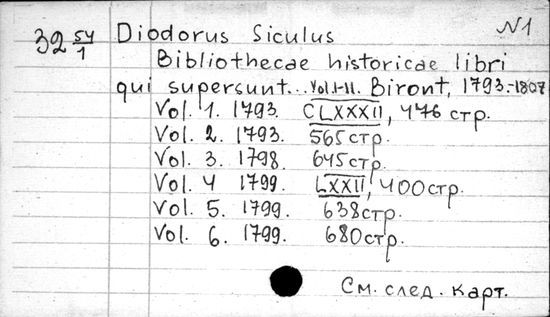 №1
32 54/1 Diodorus Siculus
Bibliothecae historicae libri
qui supersunt... Vol. I-11. Biront, 1793.-1807
Vol. 1. 1793. CLXXXII, 476 стр.
Vol. 2. 1793. 565 стр.
Vol. 3. 1798. 645 стр.
Vol. 4 1799. LXXII, 400 стр.
Vol. 5. 1799. 638 стр.
Vol. 6. 1799. 680 стр.
См. след. карт.